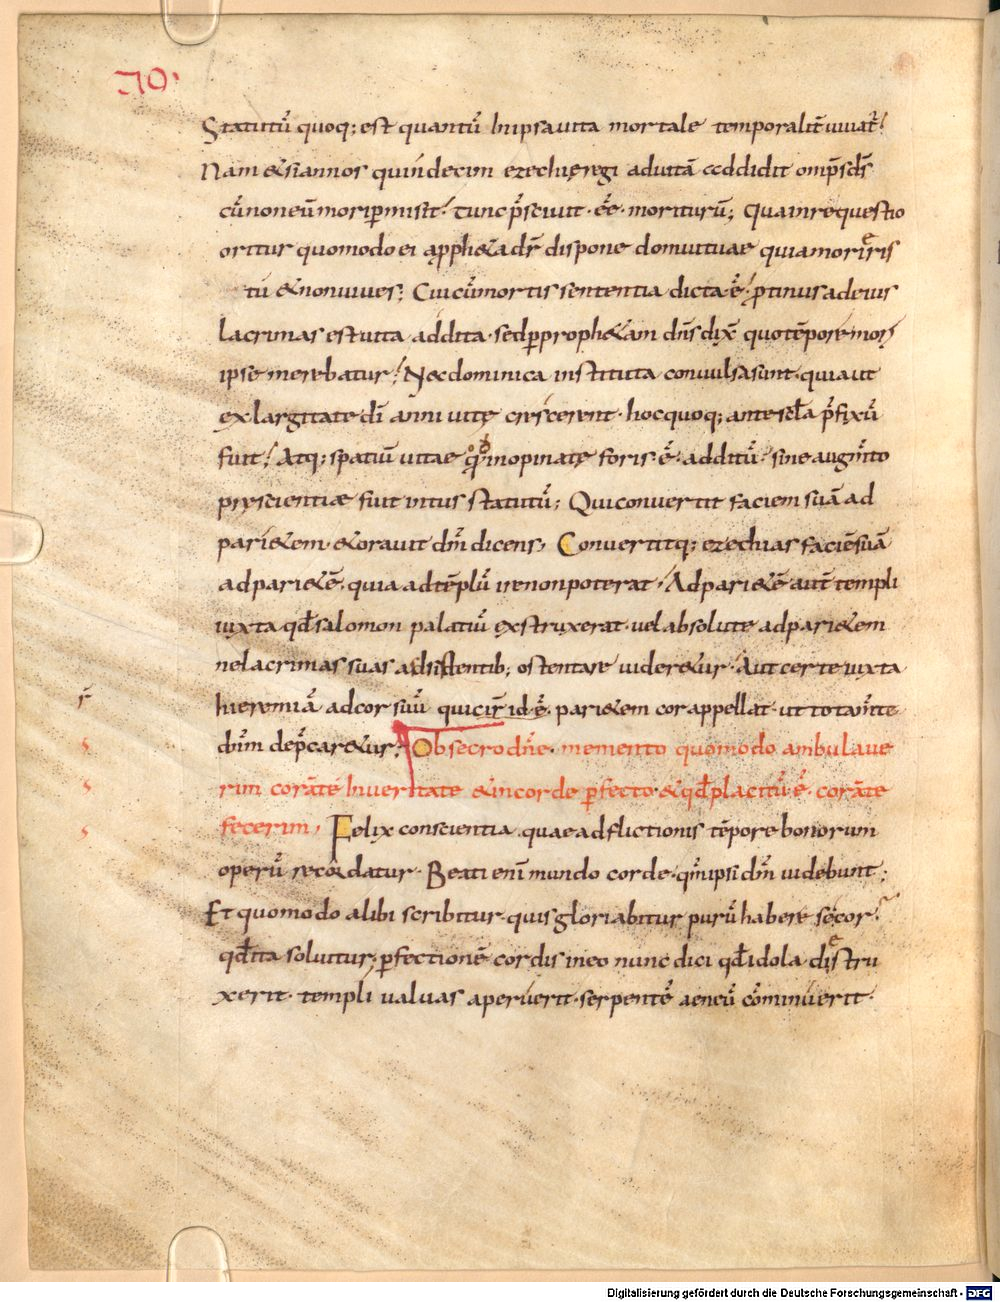 70·
Statutū quoq; est quantū In ipsa uita mortale temporalit̄ uiuat̄.
Nam & si annos quindecim ezechię regi ad uitā addidit omp̄s d̄s
cū non eū mori permisit· tunc p̄sciuit· eē· moriturū; Qua in re questio
oritur quomodo ei apph&ā dr̄ dispone domui tuae quia morieris
tu & non uiues; Cui cū mortis sententia dicta ē· protinus ad eius
lacrimas est uita addita· sed per proph&am dn̄s dix̄ quo tēpore mori
ipse merebatur; Nec dominica instituta conuulsa sunt· quia ut
ex largitate dī anni uitę crescerent· hoc quoq; ante scl̄a p̄fixū
fuit; Atq; spatiū uitae q̊d inopinate foris ē· additū· sine augm̄to
pręscientiae fuit intus statutū; Qui conuertit faciem suā ad
pari&em· & orauit dm̄ dicens· Conuertitq; ezechias faciē suā
ad pari&ē· quia ad tēplū ire non poterat· Ad pari&ē aut̄ templi
iuxta qd̄ salomon palatiū exstruxerat· uel absolute ad pari&em
ne lacrimas suas adsistentib; ostentare uider&ur· Aut certe iuxta
hieremiā ad cor suū qui cir̄ id ē· pari&em cor appellat· ut tota m̄te
dn̄m dep̄car&ur; Obsecro dn̄e· memento quomodo ambulaue
rim corā te In ueritate & in corde perfecto· & qd̄ placitū ē· corā te
fecerim· Felix conscientia quae adflictionis tēpore bonorum
operū recordatur· Beati enī mundo corde· qm̄ ipsi dm̄ uidebunt;
Et quomodo alibi scribitur· quis gloriabitur purū habere se cor?
qd̄ ita soluitur· perfectionē cordis in eo nunc dici qd̄ idola distru
xerit· templi ualuas aperuerit· serpentē aeneū cōminuerit·
r̄
s
s
s
Digitalisierung gefördert durch die Deutsche Forschungsgemeinschaft - DFG